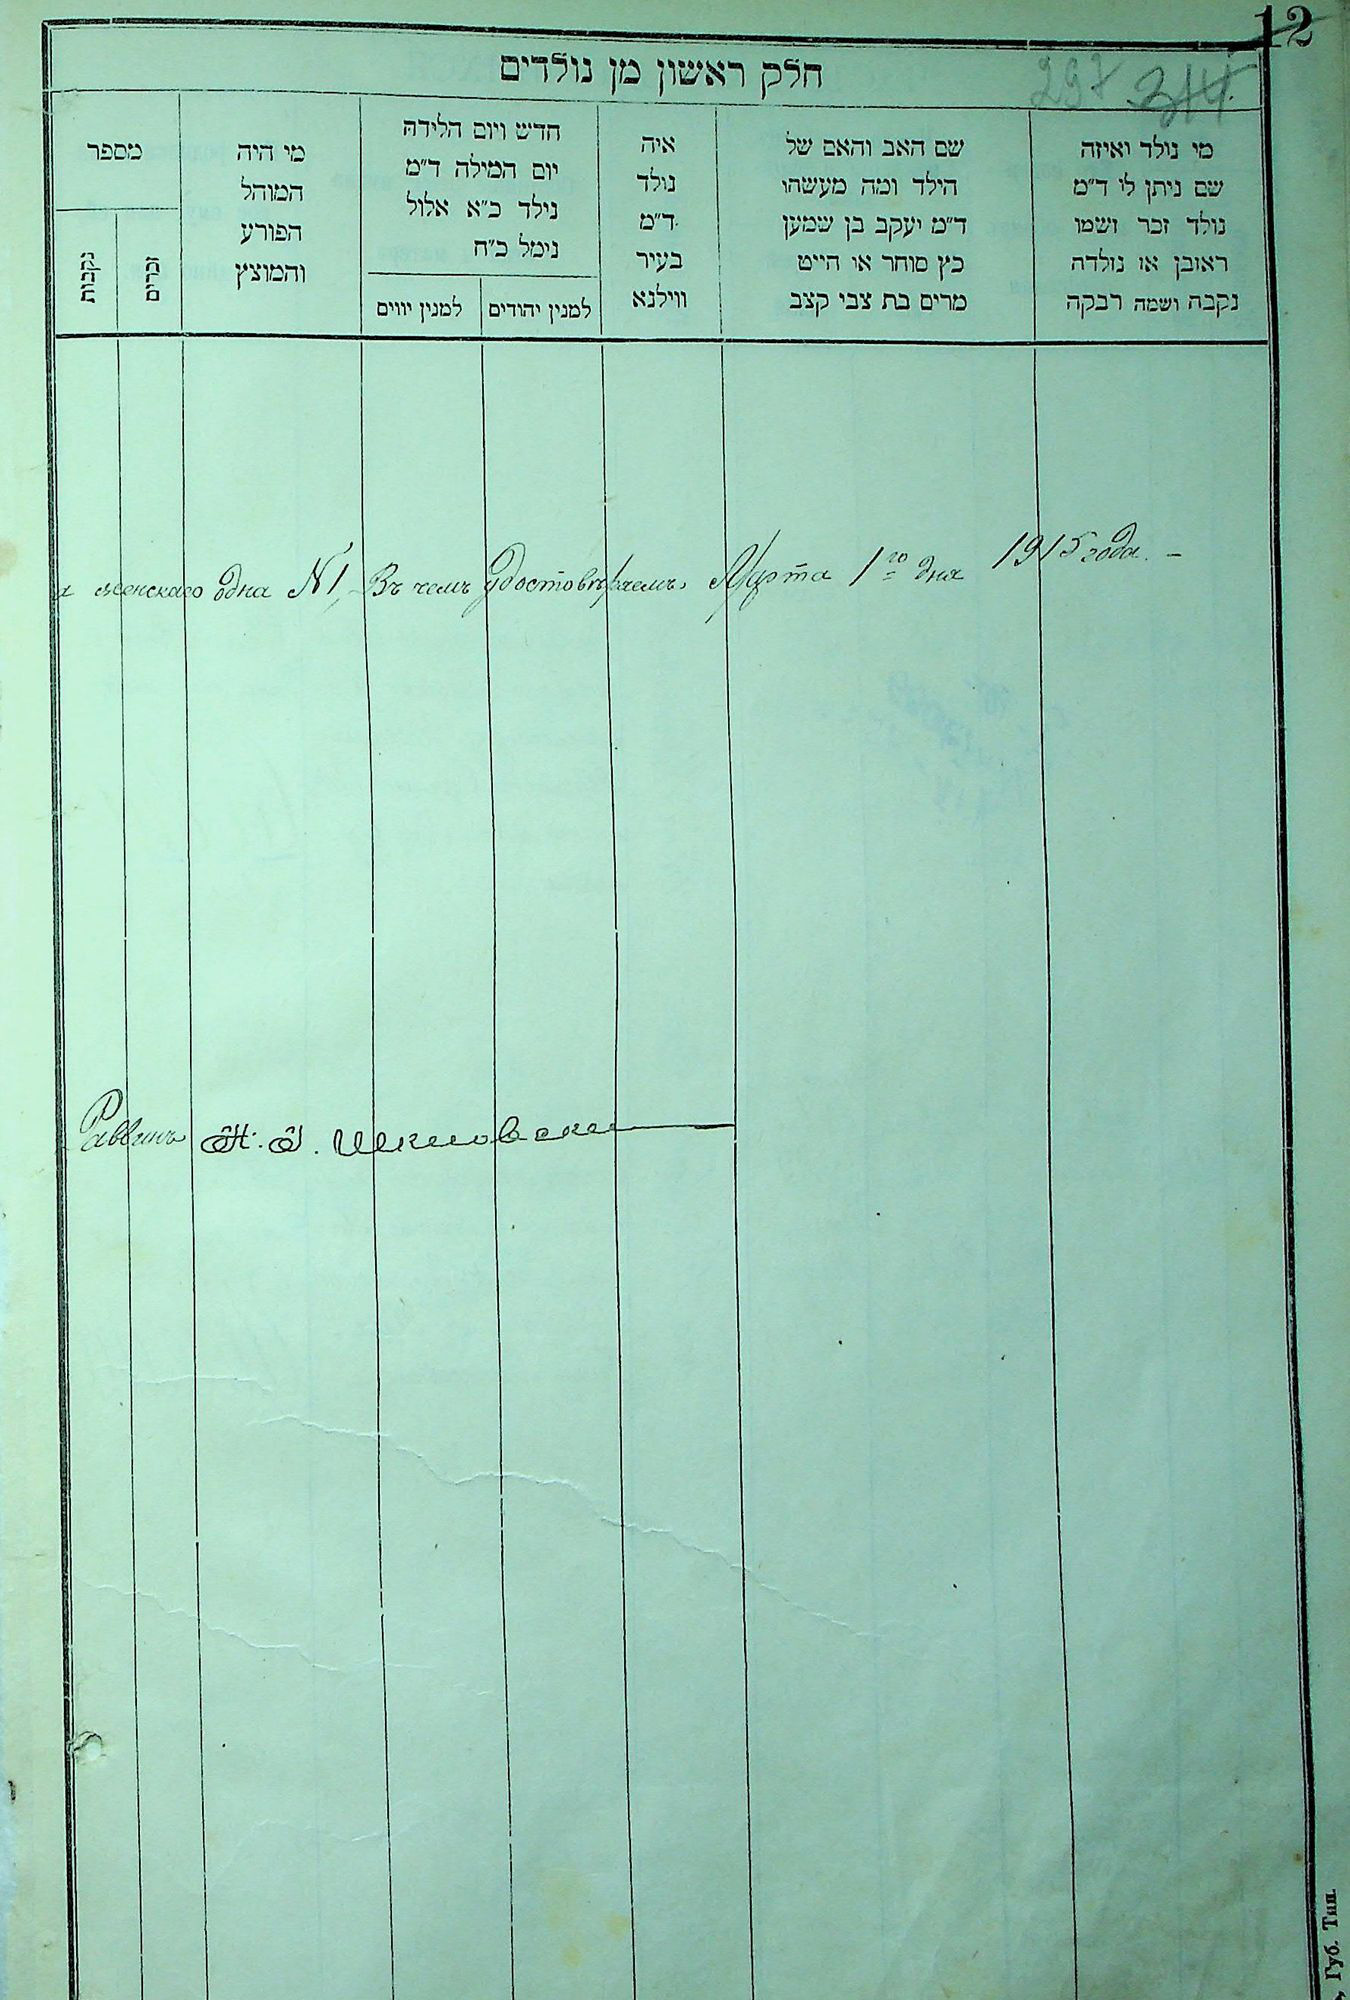 12
297 314
חלק ראשון מן נולדים
מי נולד ואיזה
שם ניתן לו ד״מ
נולד זכר ושמו
ראובן או נולדה
נקבה ושמה רבקה
שם האב והאם של
הילד ומה מעשהו
ד״מ יעקב בן שמען
כץ סוחר או חייט
מרים בת צבי קצב
איה
נולד
ד״מ
בעיר
ווילנא
חדש ויום הלידה
יום המילה ד״מ
נילד כ״א אלול
נימל כ״ח
למנין יהודים
למנין יווים
מי היה
המוהל
הפורע
והמוצץ
מספר
זכרים
נקבות
и женскаго одна №1, Въ чемъ удостовѣряемъ Марта 1го дня 1915 года. –
Раввинъ
Губ. Тип.